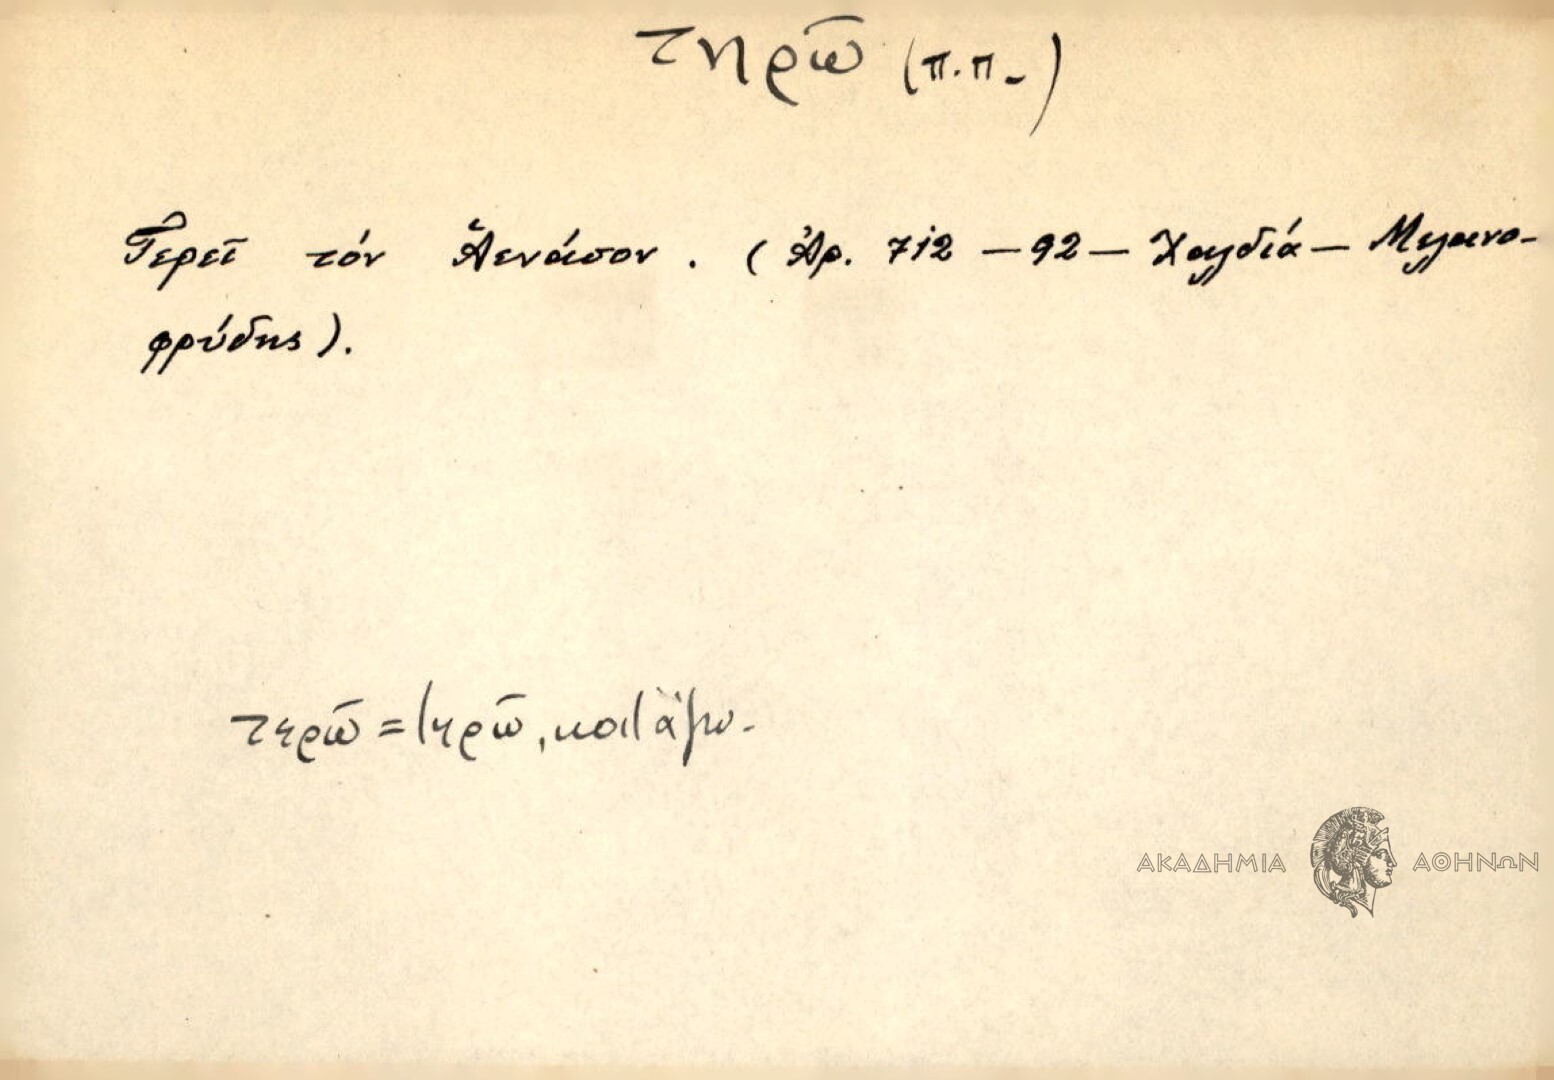 τηρῶ (π.π.)
Τερεῖ τόν Ἀενάσον. (Ἀρ. 712 – 92 – Χαλδία – Μελανο-
φρύδης).
τηρῶ = τηρῶ, κοιτάζω.
ΑΚΑΔΗΜΙΑ ΑΘΗΝΩΝ